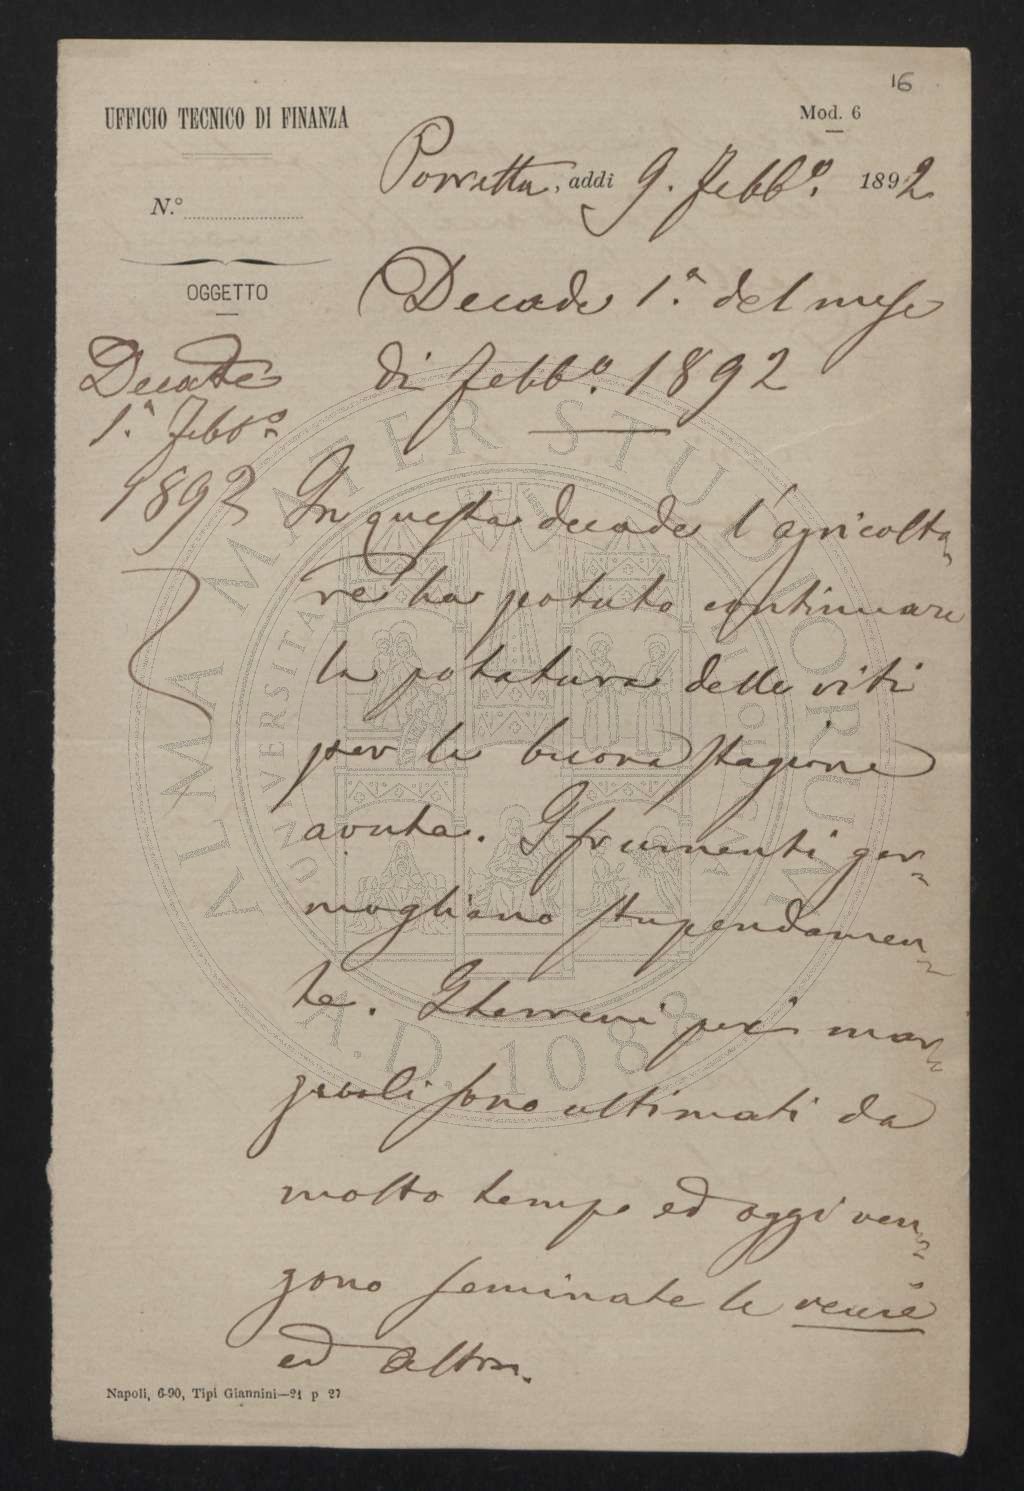 16
UFFICIO TECNICO DI FINANZA
Mod. 6
Porretta, addì 9. Febb.º 1892
N.º
OGGETTO
Decade
1.ª Febb.º
1892
Decade 1.ª del mese
di Febb.º 1892
In questa decade l'agricolto-
re ha potuto continuare
la potatura delle viti
per la buona stagione
avuta. I frumenti ger-
mogliano stupendamen-
te. I terreni pei mar-
zuoli sono ultimati da
molto tempo ed oggi ven-
gono seminate le
ed altro.
Napoli, 6-90, Tipi Giannini—21 p 27
ALMA MATER STUDIORUM
UNIVERSITA
A.D. 1088